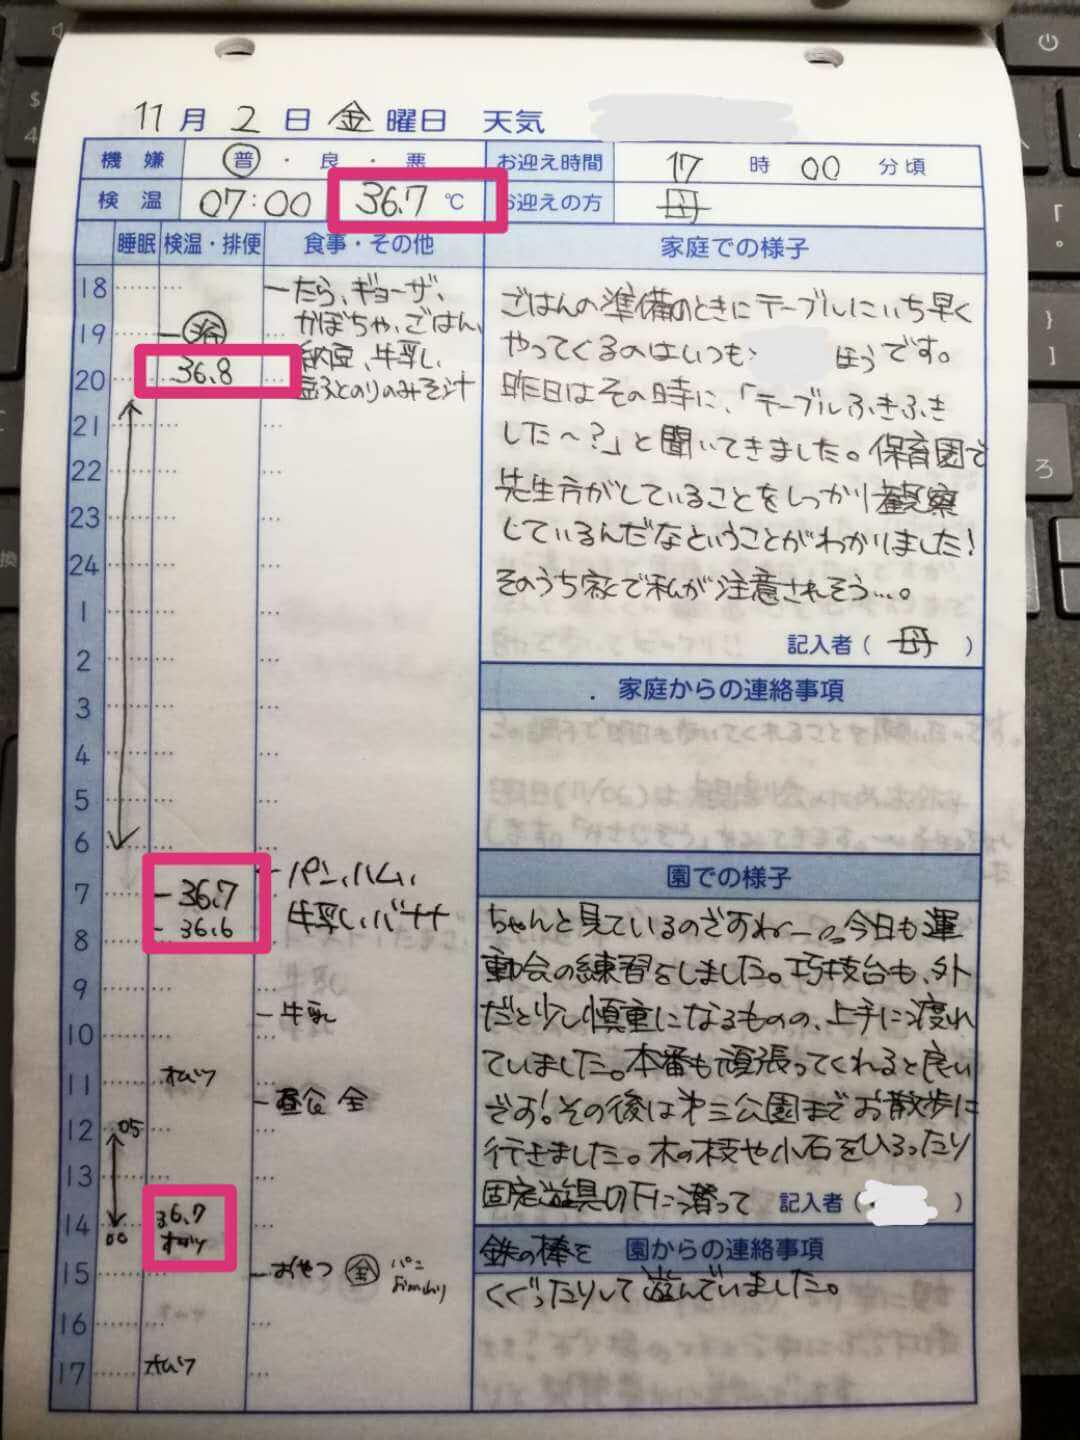 11月2日 金曜日 天気
機嫌 普・良・悪 お迎え時間 17時00分頃
検温 07:00 36.7℃ お迎えの方 母
睡眠 検温・排便 食事・その他 家庭での様子
18 たら、ギョーザ、
かぼちゃ、ごはん、
19 浴
納豆、牛乳、
20 36.8
豆ふとのりのみそ汁
21
22
23
24
1
2
3
4
5
6
7 36.7 パン、ハム、
36.6 牛乳、バナナ
8
9
牛乳
10
11 オムツ
昼食 全
12 05
13
14 36.7
00 オムツ
15 おやつ 全 パン
16
17 オムツ
ごはんの準備のときにテーブルにいち早く
やってくるのはいつも ほうです。
昨日はその時に、「テーブルふきふき
した〜?」と聞いてきました。保育園で
先生方がしていることをしっかり観察
しているんだなということがわかりました!
そのうち家で私が注意されそう…。
記入者(母)
家庭からの連絡事項
園での様子
ちゃんと見ているのですねー。今日も運
動会の練習をしました。巧技台も、外
だと少し慎重になるものの、上手に渡れ
ていました。本番も頑張ってくれると良い
です!その後は第三公園までお散歩に
行きました。木の枝や小石をひろったり
固定遊具の下に潜って 記入者( )
鉄の棒を 園からの連絡事項
くぐったりして遊んでいました。